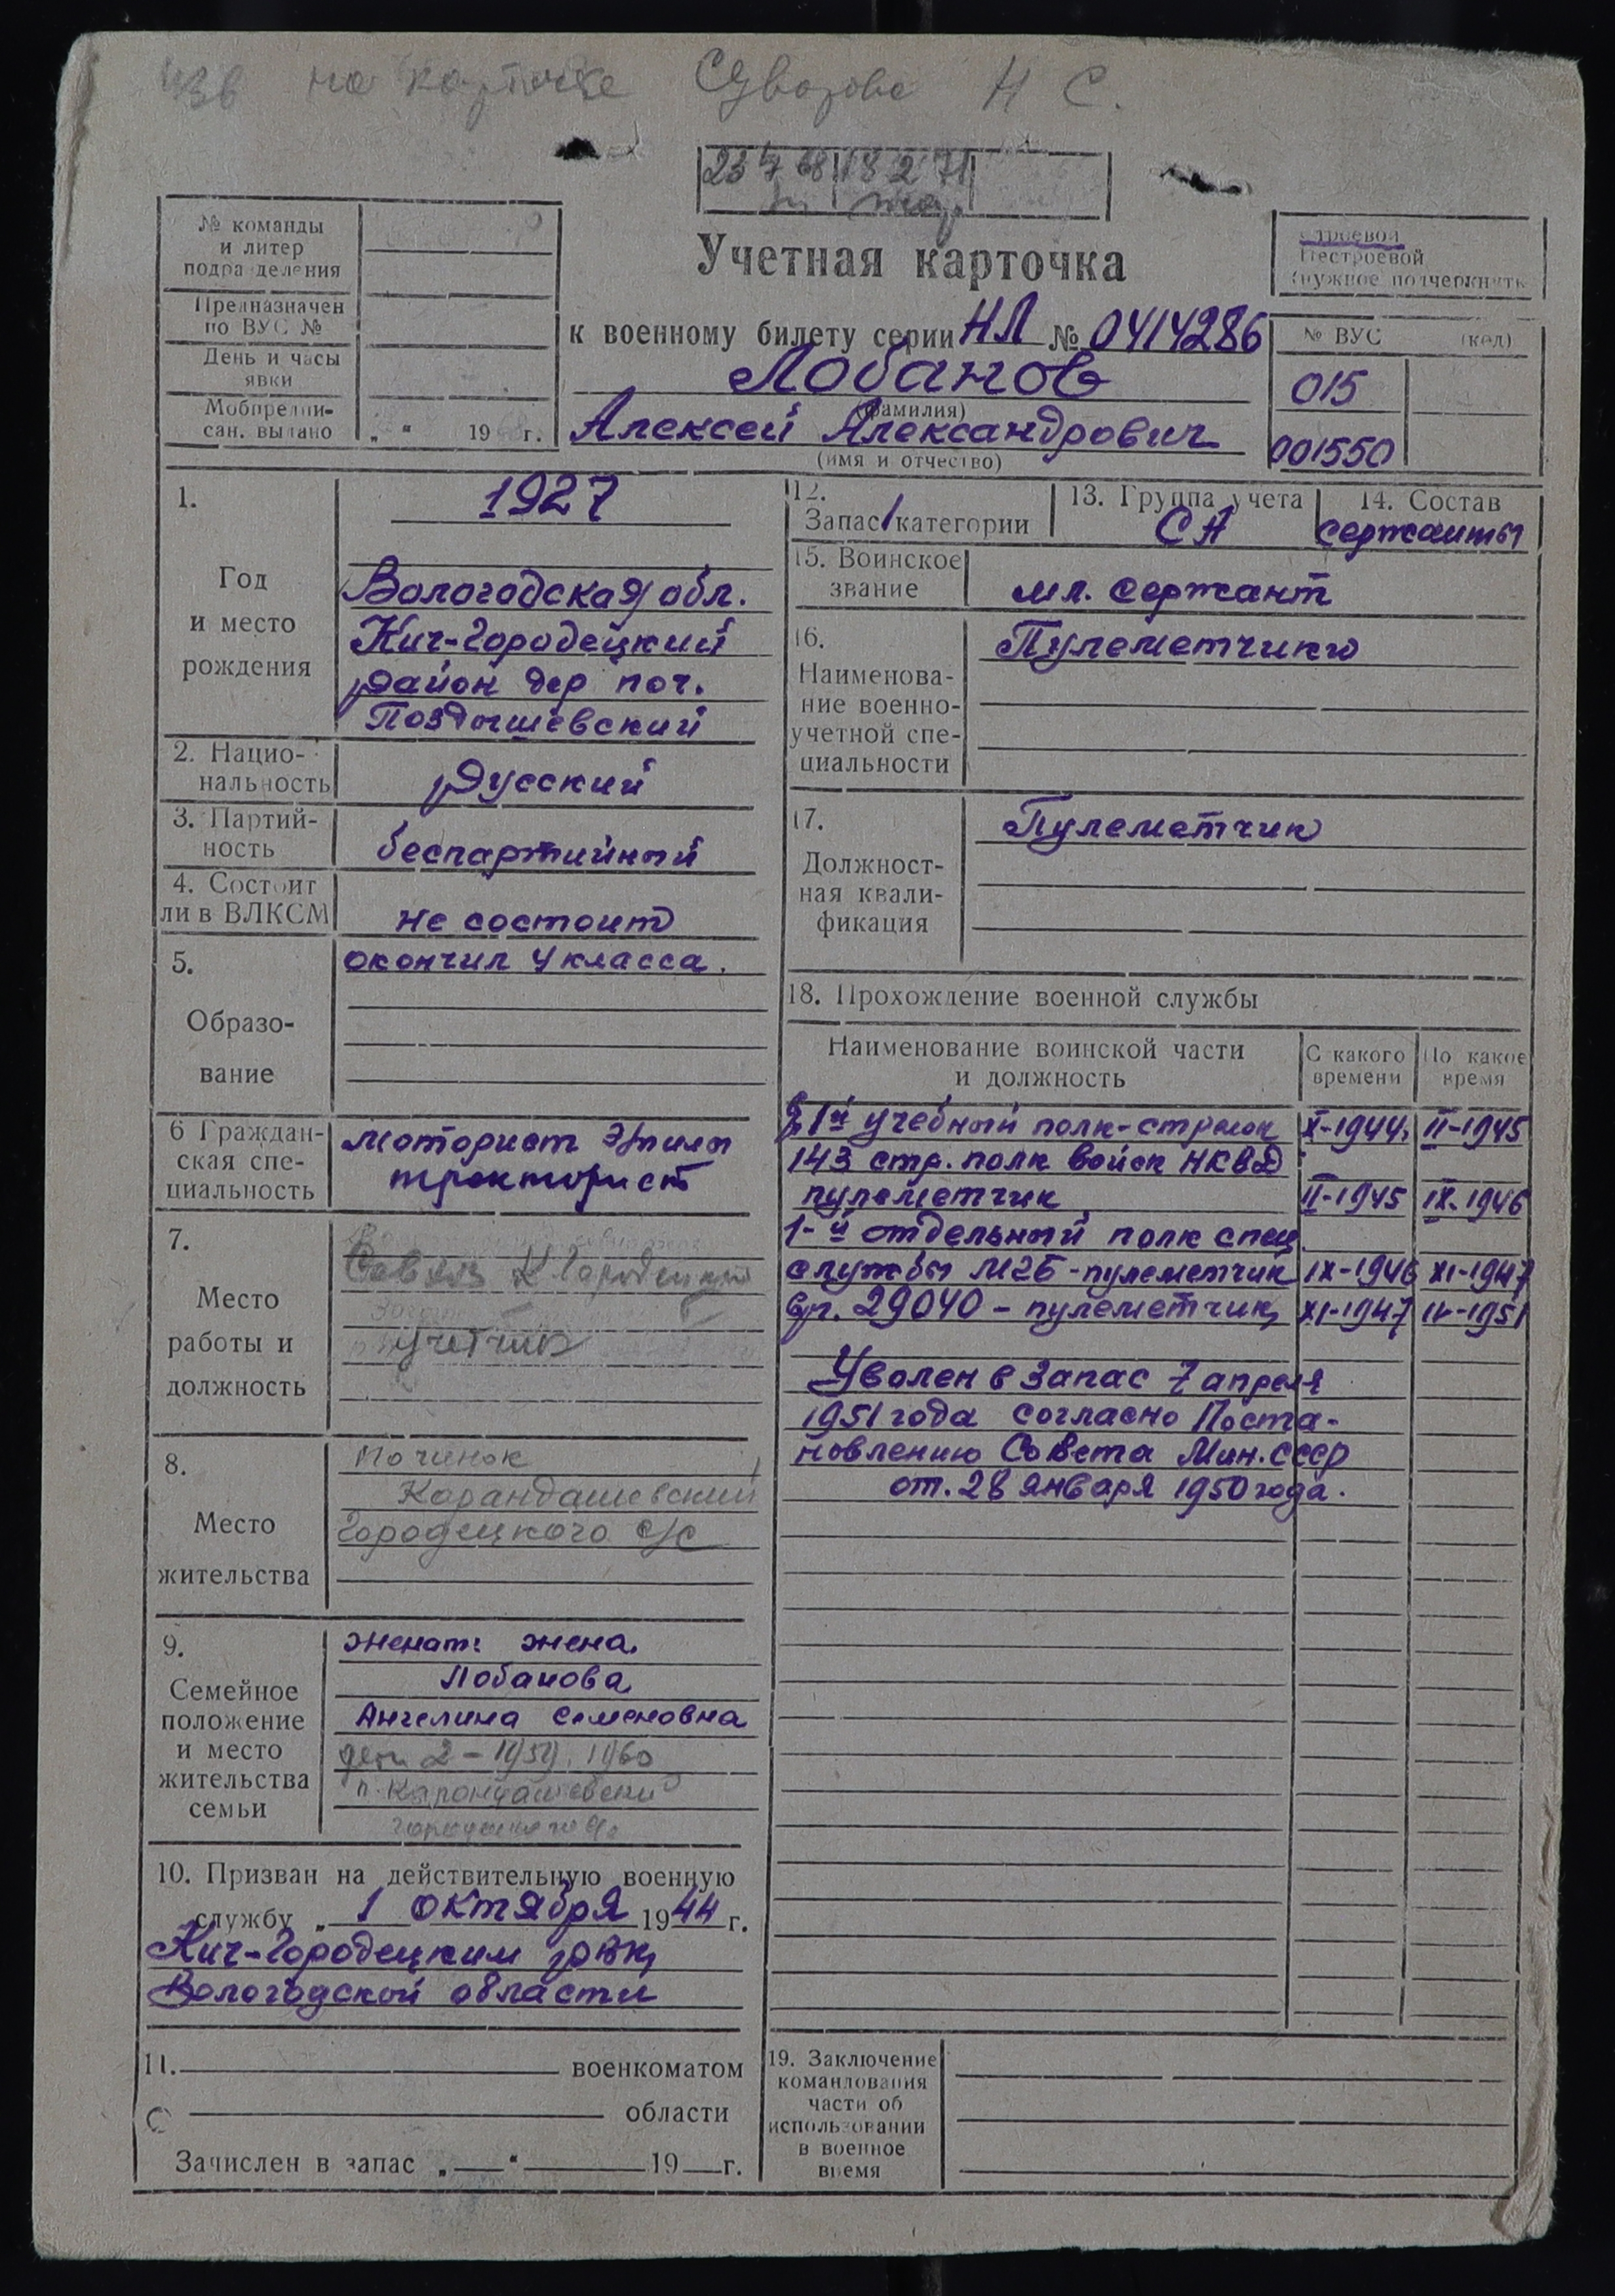 на карточке Суворова Н С.
23 7 68 18 2 71
№ команды
и литер
подразделения
Предназначен
по ВУС №
День и часы
явки
Мобпредпи-
сан. выдано „ “ 19 г.
Учетная карточка
к военному билету серии НЛ № 0414286
Лобанов
(фамилия)
Алексей Александрович
(имя и отчество)
Строевой
Нестроевой
(нужное подчеркнуть
№ ВУС (код)
015
001550
1.
Год
и место
рождения
1927
Вологодская обл.
Кич-Городецкий
район дер поч.
Поздышевский
2. Нацио-
нальность
русский
3. Партий-
ность
беспартийный
4. Состоит
ли в ВЛКСМ
не состоит
5.
Образо-
вание
окончил 4 класса.
6 Граждан-
ская спе-
циальность
моторист Эл пилы
тракторист
7.
Место
работы и
должность
учетчик
8.
Место
жительства
Починок
Карандашевский
Городецкого с/с
9.
Семейное
положение
и место
жительства
семьи
женат: жена
Лобанова
Ангелина Семеновна
дети 2 - 1959, 1960
п. Карандашевский
10. Призван на действительную военную
службу „ 1 октября 1944 г.
Кич-Городецким РВК
Вологодской области
11. военкоматом
области
Зачислен в запас „ “ 19 г.
12.
Запас 1 категории
13. Группа учета
СА
14. Состав
сержанты
15. Воинское
звание
мл. сержант
16.
Наименова-
ние военно-
учетной спе-
циальности
Пулеметчики
17.
Должност-
ная квали-
фикация
Пулеметчик
18. Прохождение военной службы
Наименование воинской части
и должность
С какого
времени
По какое
время
1й учебный полк - стрелок X-1944. II-1945
143 стр. полк войск НКВД
пулеметчик II-1945 IX-1946
1-й отдельный полк спец
службы МГБ - пулеметчик IX-1946 XI-1947
29040 - пулеметчик XI-1947 IV-1951
Уволен в запас 7 апреля
1951 года согласно Поста-
новлению Совета Мин. СССР
от. 28 января 1950 года.
19. Заключение
командования
части об
использовании
в военное
время